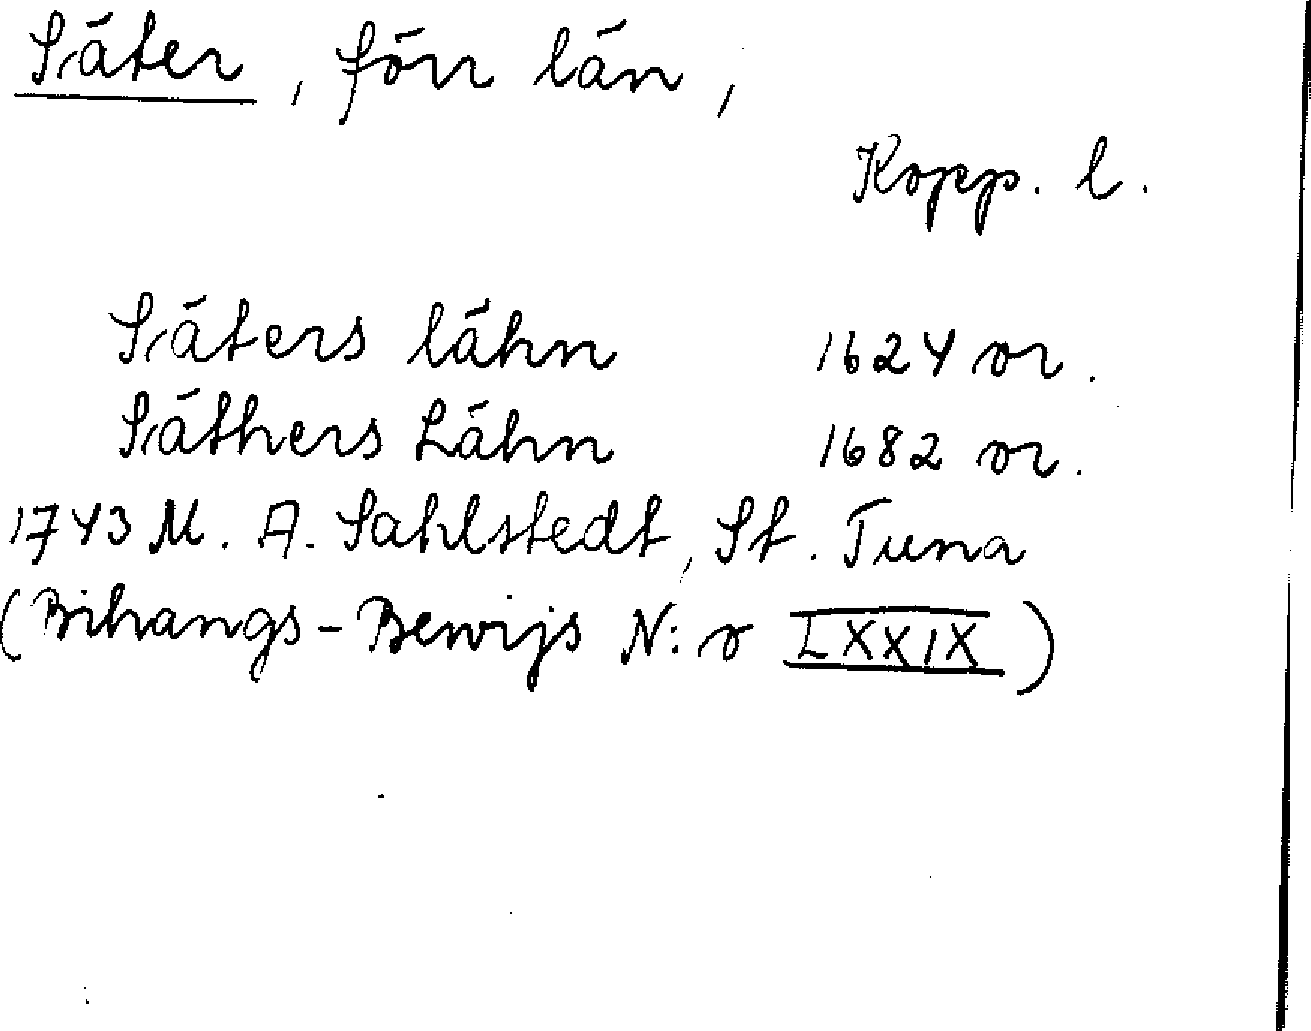 Säter, förr län,
Kopp. l.
Säters lähn 1624 or.
Säthers Lähn 1682 or.
1743 M. A. Sahlstedt, St. Tuna
(Bihangs-Bewijs N:r LXXIX)